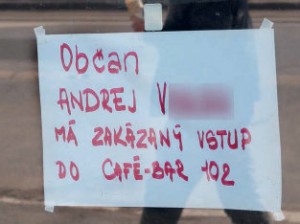 Občan
ANDREJ V
MÁ ZAKÁZANÝ VSTUP
DO CAFÉ-BAR 102